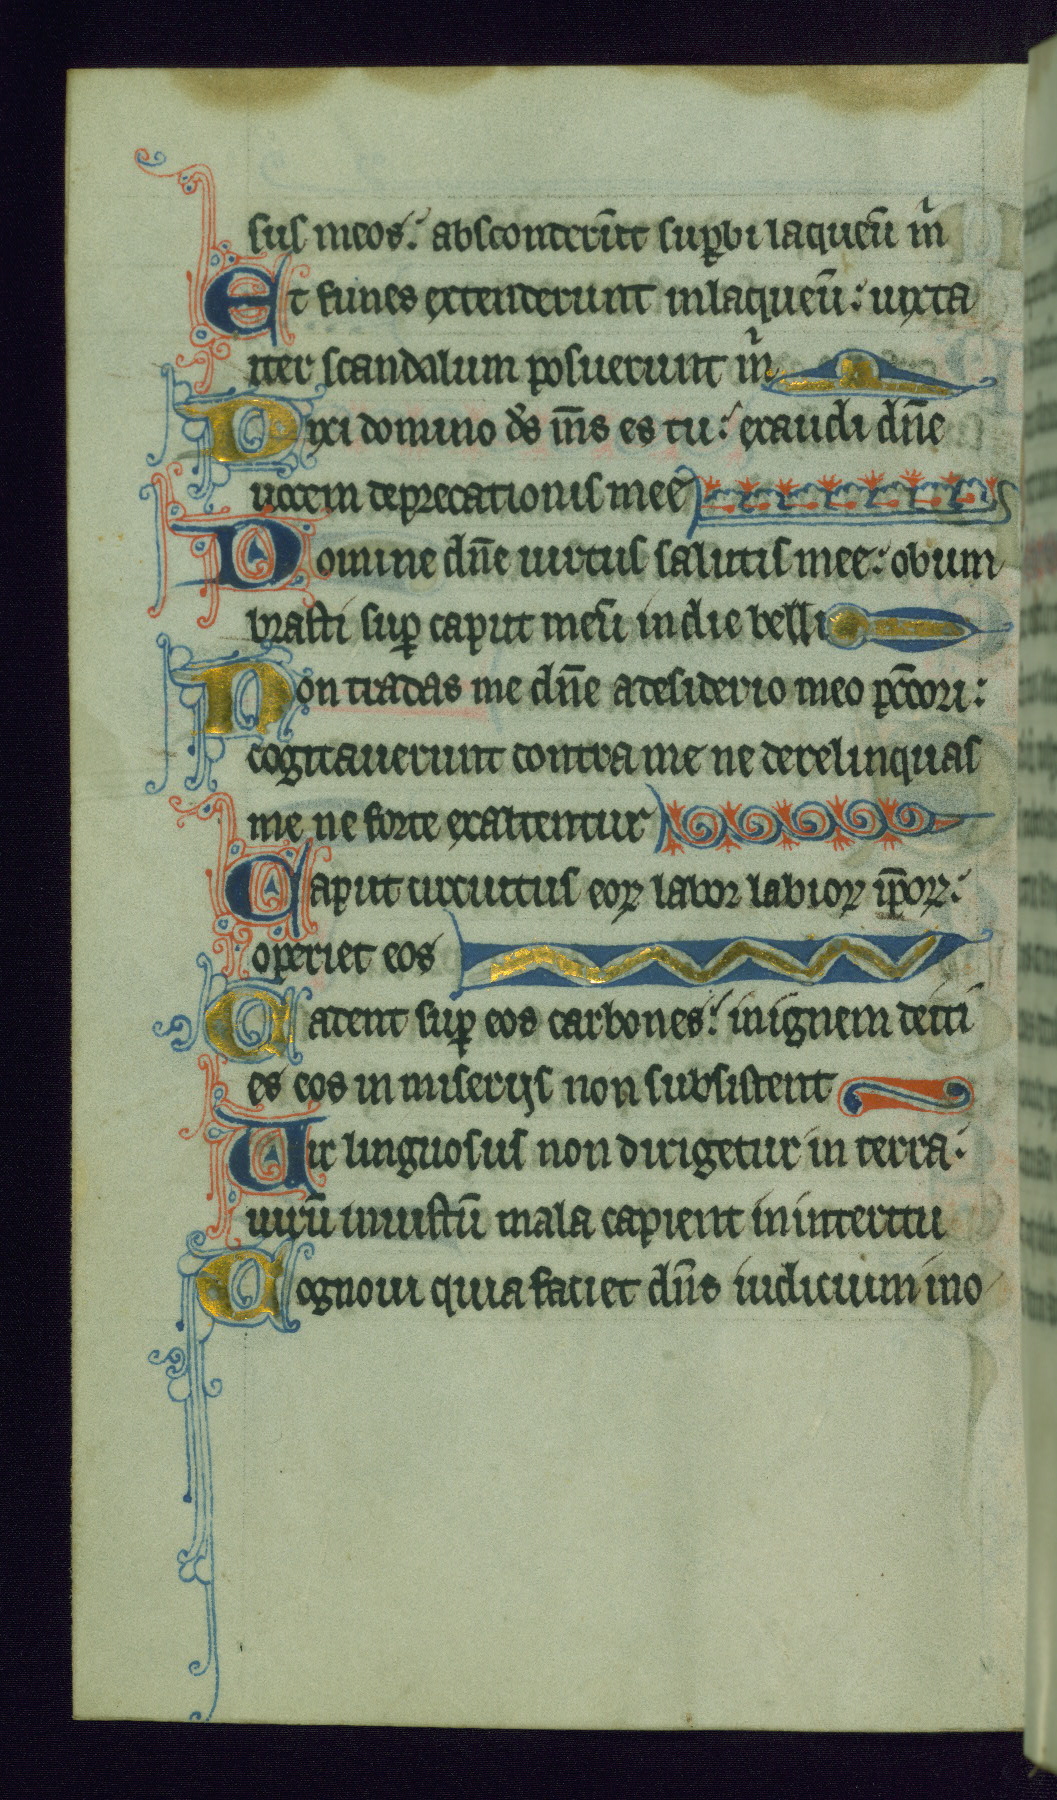 sus meos: absconderūt supbi laqueū m̄
Et funes extenderunt in laqueū: iuxta
iter scandalum posuerunt m̄
Dixi domino ds̄ ms̄ es tu: exaudi dn̄e
uocem deprecationis mee
Domine dn̄e uirtus salutis mee: obum
brasti sup caput meū in die belli
Non tradas me dn̄e a desiderio meo pc̄cori:
cogitauerunt contra me ne derelinquas
me ne forte exaltentur
Caput circuitus eoꝝ labor labioꝝ ip̄oꝝ:
operiet eos
Cadent sup eos carbones: in ignem deici
es eos in miserijs non subsistent
Uir linguosus non dirigetur in terra:
uirū iniustū mala capient in interitu
Cognoui quia faciet dn̄s iudicium ino